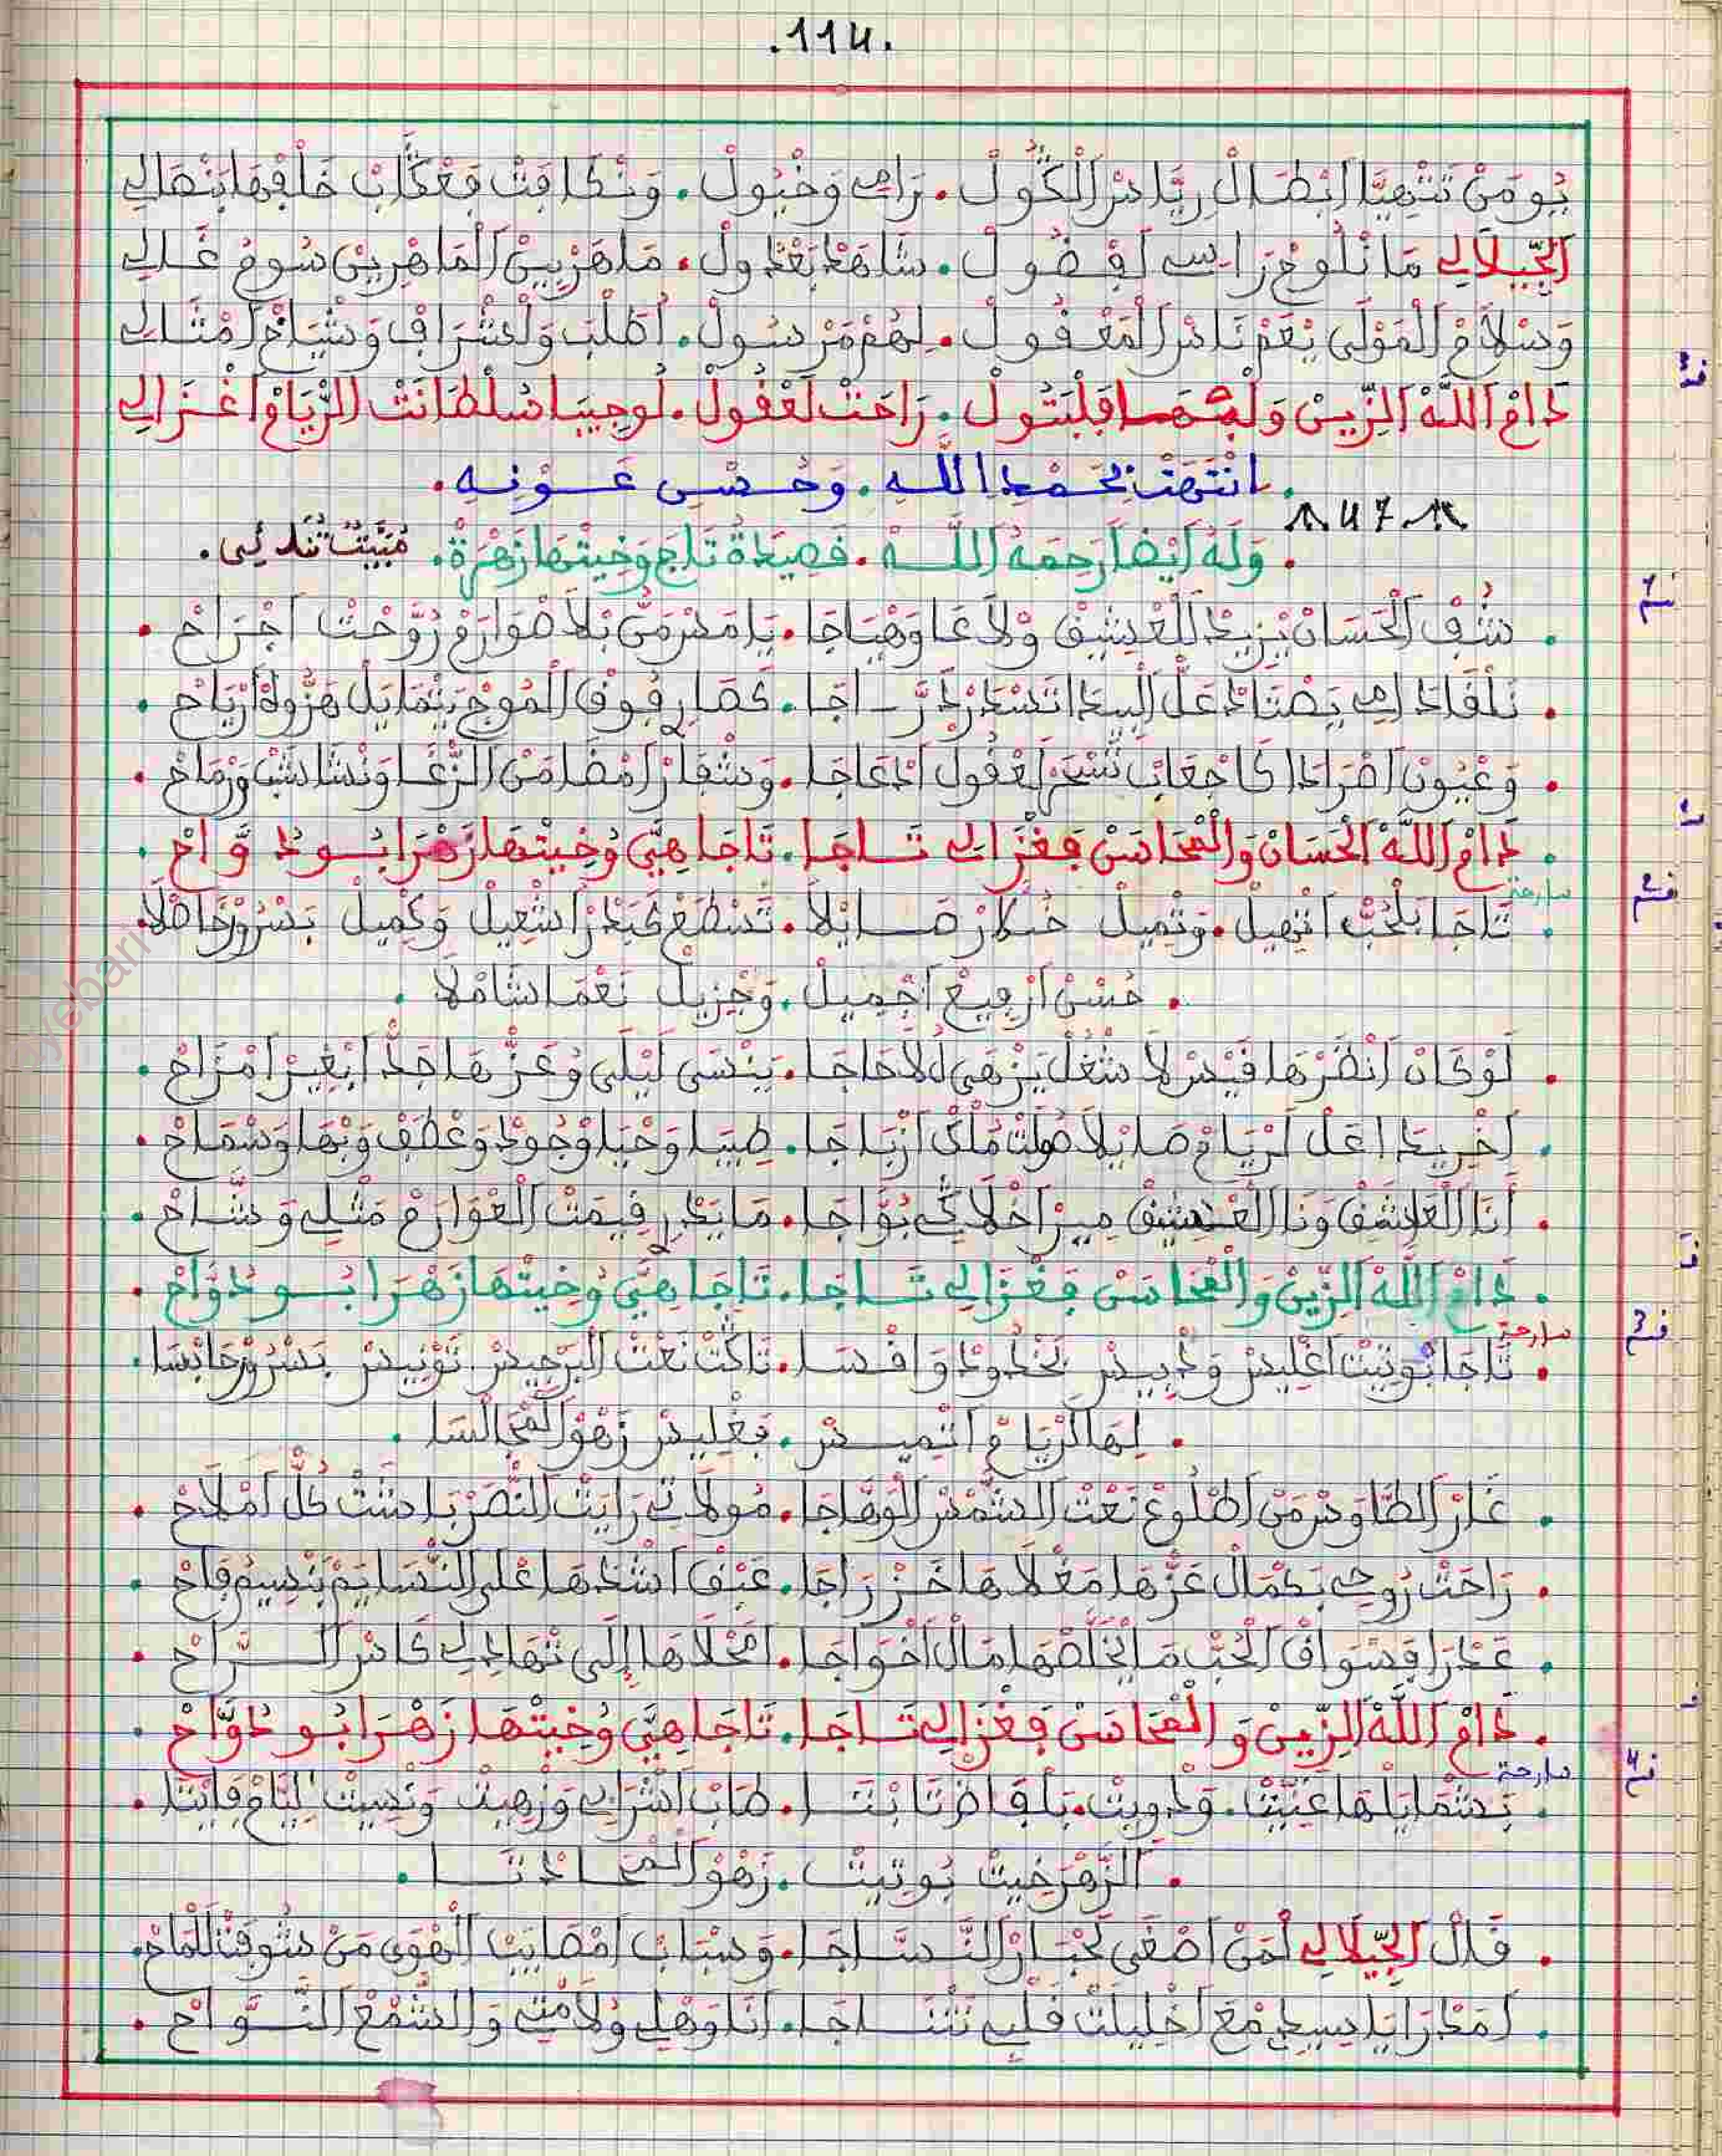 .114.
يُومَنْ تَنْتْهِيَّا ابْطَالْ رِيَّاسْ الْكُولْ. رَامِي وَخْيُولْ. وَتْكَافِتْ فَعْكَابْ خَلْفْهَا بَنْصَالِي
الْجِّيلَالِي مَا نْلُوحْ رَايِسْ افْضُولْ. شَاهَدْ بَعْدُولْ. مَاهَرْبِينْ الْمَاهْرِينْ سُومْ غَالِي
وَسْلَامْ الْمَوْلَى يْعَمْ نَاسْ الْمَعْقُولْ. لِهُمْ مَرْسُولْ. اطْلْبَ وَلْشْرَافْ وَشْيَاخْ امْثَالِي
دَامْ اللَّهْ الزِّينْ وَلْبْهَا فَلْبَتُولْ. رَاحَتْ لَعْقُولْ. لُوجِيبَا سُلْطَانَتْ الرْيَامْ اغْزَالِي
. انْتَهَتْ بِحَمْدِ اللَّهِ. وَحُسْنِ عَوْنِهِ.
47
. وَلَهُ أَيْضاً رَحِمَهُ اللَّهُ. قَصِيدَةُ تَاجَ وَخِيتْهَا زَهْرَةْ. مُبَيَّتْ ثُنَائِي.
. شُفْ الْحَسَانْ يْزِيدْ الْعْشِيقْ وْلَاعَا وَهْيَاجَا. يَا مَسْرَمَنْ بْلَا صْوَارَمْ رُوَّحْتْ اجْرَاحْ .
. تَلْقَادْ امِي يَصْتَادْ عَلْ الْسِيدَا تَسْدَرْدَرَّاجَا. كَصَارِي فُوقْ الْمُوجْ يَتْمَايَلْ هَزُّوهْ ارْيَاحْ .
. وَعْيُونْ اصْرَادَا كَاجْعَابْ تَسْحَرْ لَعْقُولْ ادْعَاجَا. وَشْفَارْ امْضَا مَنْ الزْغَا وَنْشَاشَبْ وَرْمَاحْ .
. دَامْ اللَّهْ الْحَسَانْ وَالْمْحَاسَنْ فَغْزَالِي تَاجَا. تَاجَا هِيَّ وُخِيتْهَا زَهْرَا بُو دُوَّاحْ .
سارحة
. تَاجَا بَلْحُبّْ اتْهِيلْ. وَتْمِيلْ حُكَّارْ صَايْلَا. تَسْطَعْ كَبَدْرْ اشْعِيلْ وَكْمِيلْ بَسْرُورْ حَاصْلَا.
. حُسْنْ ارْفِيعْ اجْمِيلْ. وَجْزِيلْ نَعْمَا شَامْلَا .
. لَوْ كَانْ انْظَرْهَا قَيْسْ لَا شْغُلْ يَزْهَى لُ لَا حَاجَا. يَنْسَى لَيْلَى وُعَزّْهَا جَدّْ ابْغِيرْ امْزَاحْ .
. اخْرِيدَا عَلْ لَرْيَامْ صَايْلَا صُولْتْ مَلْكْ ازْبَاجَا. طِيبَا وَحْيَا وْجُودْ وَعْطَفْ وَبْهَا وَسْمَاحْ .
. أَنَا الْعَاشَقْ وَنَا الْعْشِيقْ مِيرْ اخْلَاكِي بُوَّاجَا. مَا يَدْرِي قِيمْتْ الْغْوَارَمْ مَثْلِي وَشَّاحْ .
. دَامْ اللَّهْ الزِّينْ وَالْمْحَاسَنْ فَغْزَالِي تَاجَا. تَاجَا هِيَّ وُخِيتْهَا زَهْرَا بُو دُوَّاحْ .
سارحة
. تَاجَا بُوتِيتْ اغْلِيسْ وَدْبِيسْ بَخْدُودْ وَاقْسَا. تَاكْتْ نَعْتْ الْبَرْجِيسْ. تَوْنِيسْ بَسْرُورْ حَابْسَا.
. لِهَا لَرْيَامْ اتْمِيسْ. بَغْلِيسْ زَهْوْ الْمْجَالْسَا .
. غَارْ الطَّاوَسْ مَنْ اطْلُوعْ نَعْتْ الشَّمْسْ الْوَهَّاجَا. مُولَاتِي رَايَتْ النَّصْرْ بَاشَتْ كُلّْ امْلَاحْ .
. رَاحَتْ رُوحِي بَكْمَالْ عَزّْهَا مَغْلَاهَا خَزْرَاجَا. عَبْقْ اشْدَاهَا عْلَى النّْسَايَمْ بَنْسِيمْ فَاحْ .
. عَدْرَا فَسْوَاقْ الْحُبّْ مَا يْخَلَّصْهَا مَالْ اخْوَاجَا. امْحْلَاهَا إِلَى تْهَادِي لِي كَاسْ الرَّاحْ .
. دَامْ اللَّهْ الزِّينْ وَالْمْحَاسَنْ فَغْزَالِي تَاجَا. تَاجَا هِيَّ وُخِيتْهَا زَهْرَا بُو دُوَّاحْ .
سارحة
. بَشْمَايَلْهَا غَنِّيتْ. وَدْوِيتْ. بَلْفَاضْ تَابْتَا. طَابْ اشْرَابِي وَزْهِيتْ وَنْسِيتْ لِيَّامْ فَايْتَا .
. الزَّهْرَ خِيتْ بُوتِيتْ. زَهْوْ الْمْحَادْتَا .
. قَالْ الْجِّيلَالِي لَمَنْ اصْغَى لَخْبَارْ النَّسَّاجَا. وَسْبَابْ امْصَايَبْ الْهْوَى مَنْ شُوفْتْ لَلْمَاحْ.
. امَدْرَا يَا سِيدِي مْعَ اخْلِيلْتْ قَلْبِي نَتْنَاجَا. أَنَا وَهْلِي وُلَامْتِي وَالشَّمْعْ النُّوَّاحْ .